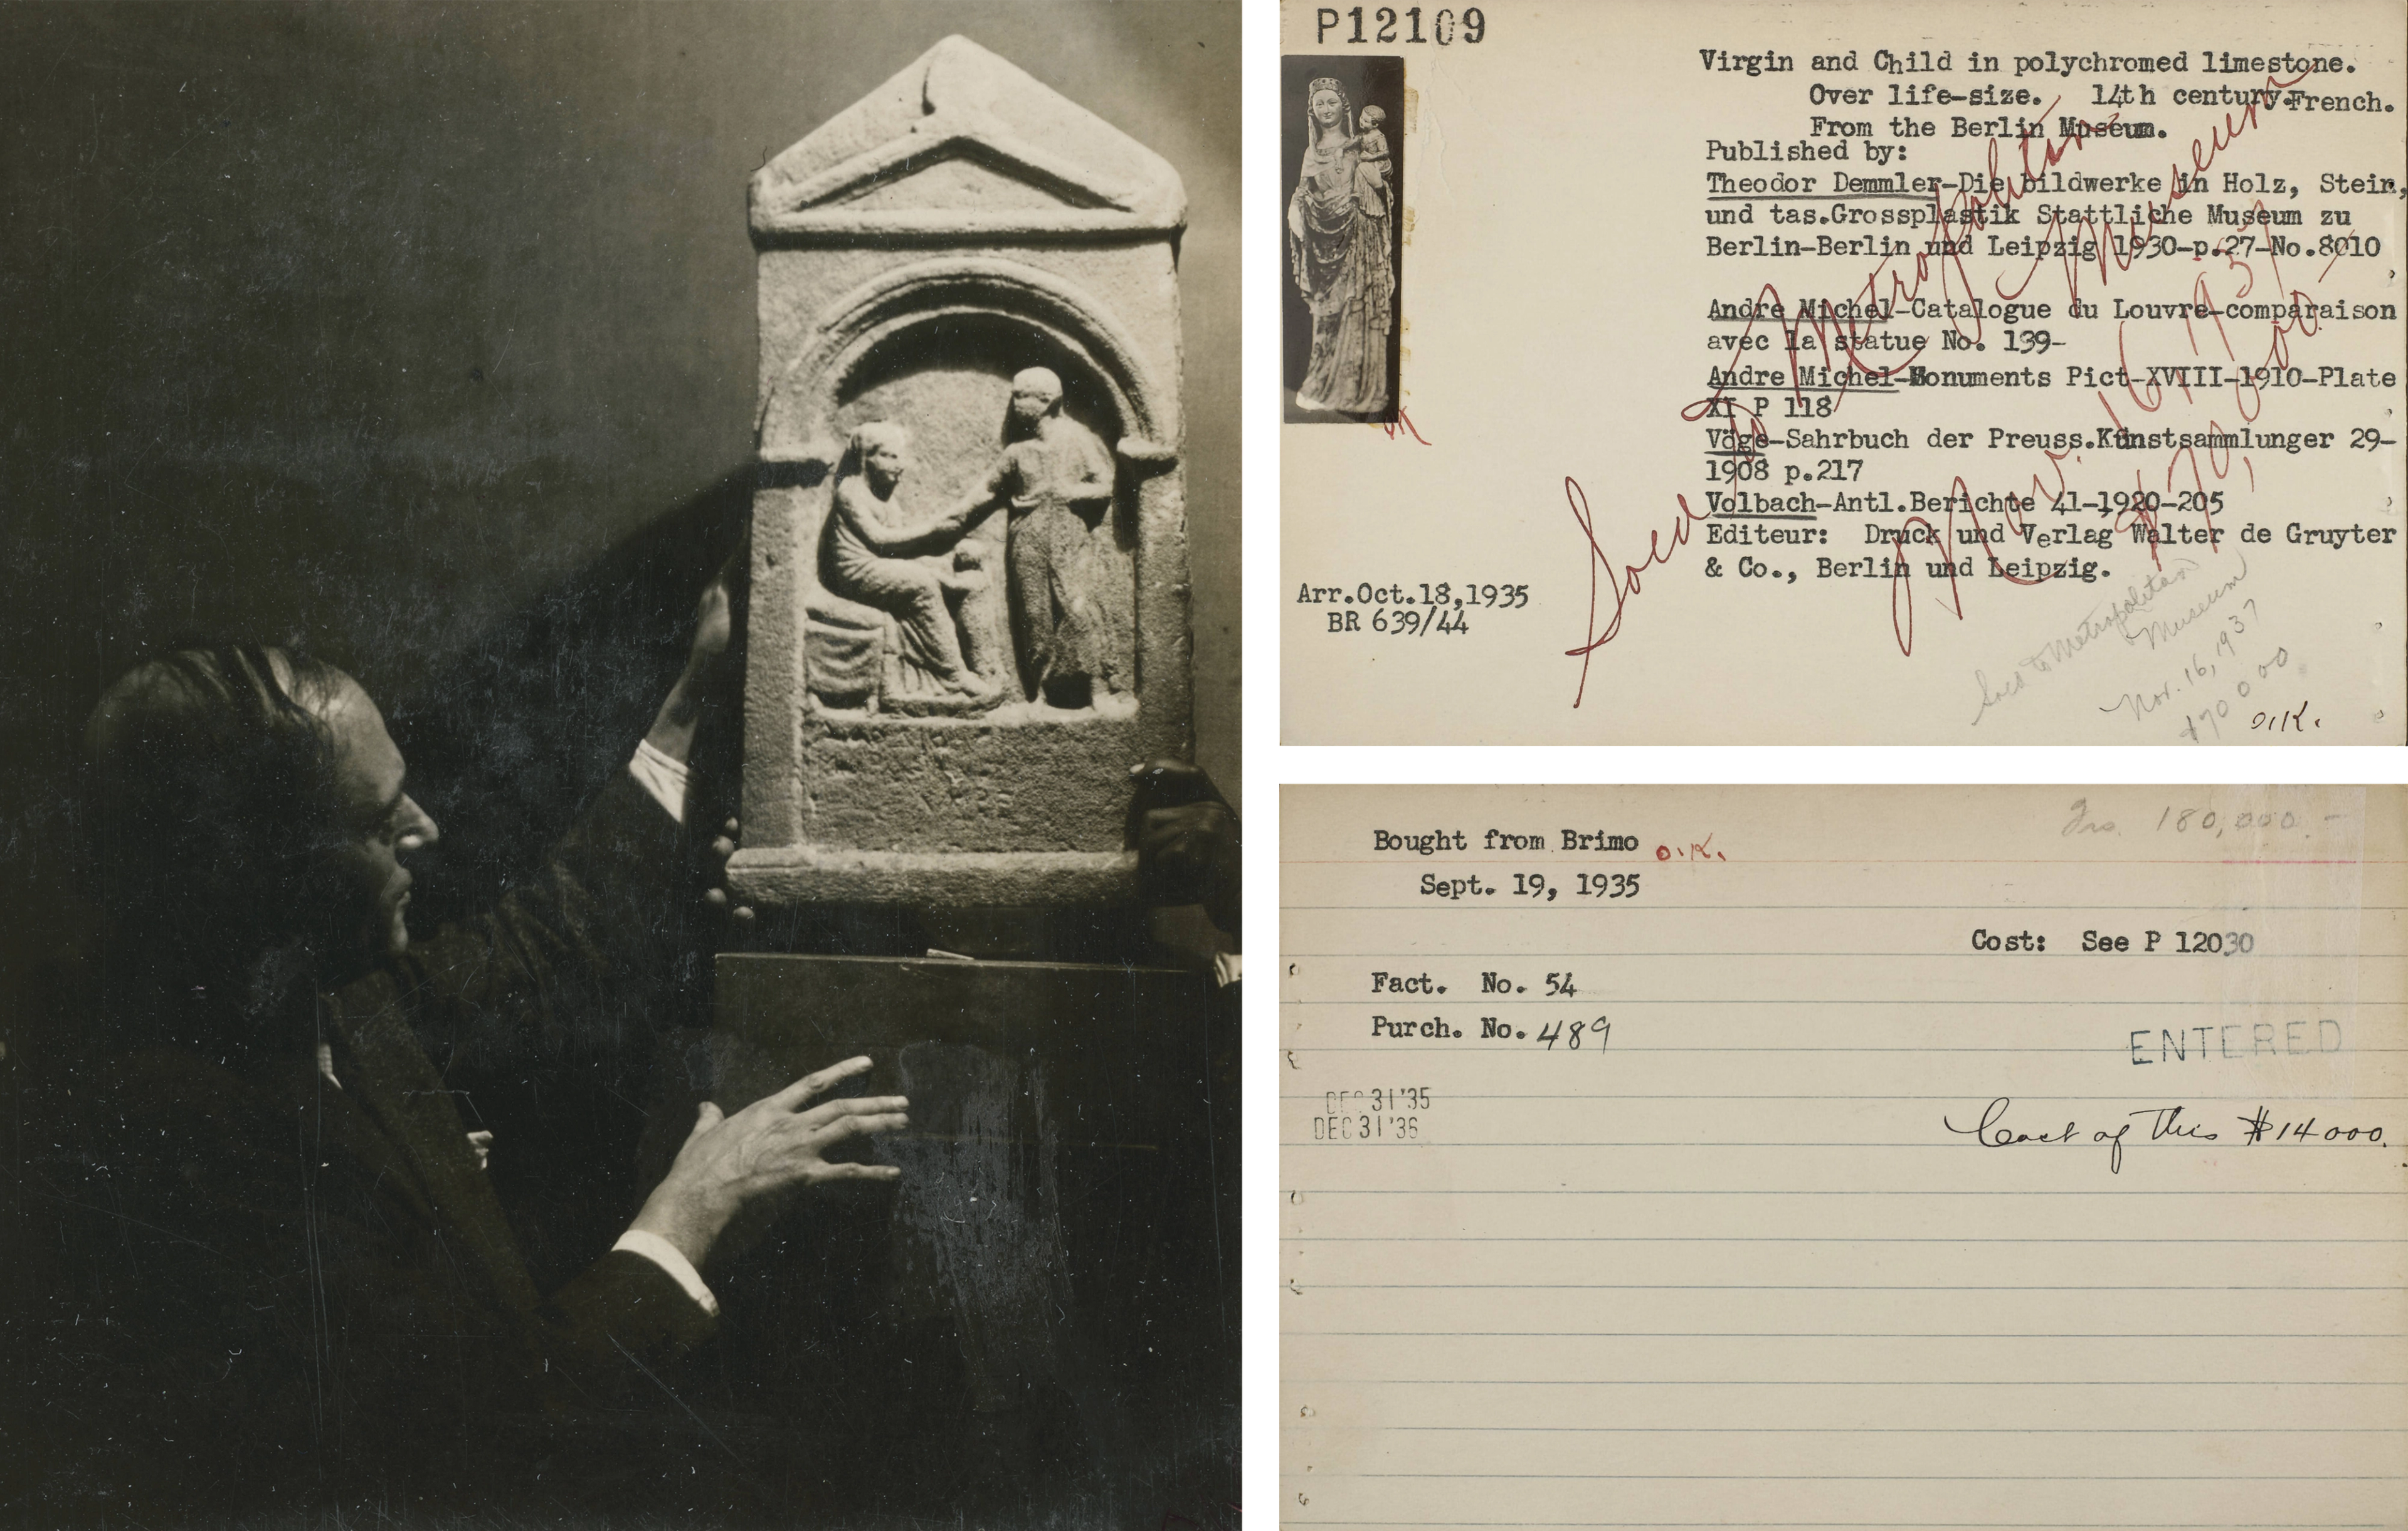 P12109
Virgin and Child in polychromed limestone.
Over life-size. 14th century.French.
From the Berlin Museum.
Published by:
Theodor Demmler-Die bildwerke in Holz, Stein,
und tas.Grossplastik Stattliche Museum zu
Berlin-Berlin und Leipzig 1930-p.27-No.8010
Andre Michel-Catalogue du Louvre-comparaison
avec la statue No. 139-
Andre Michel-Monuments Pict-XVIII-1910-Plate
XI P 118
Vöge-Sahrbuch der Preuss.Kunstsammlunger 29-
1908 p.217
Volbach-Antl.Berichte 41-1920-205
Editeur: Druck und Verlag Walter de Gruyter
& Co., Berlin und Leipzig.
Arr.Oct.18,1935
BR 639/44
Sold to Metropolitan Museum
Nov. 16, 1937
$70,000-
Sold to Metropolitan
Museum
Nov. 16, 1937
$70000
O.K.
Frs. 180,000.-
Bought from Brimo O.K.
Sept. 19, 1935
Cost: See P 12030
Fact. No. 54
Purch. No. 489
ENTERED
DEC 31 '35
DEC 31 '36
Cost of this $14000.